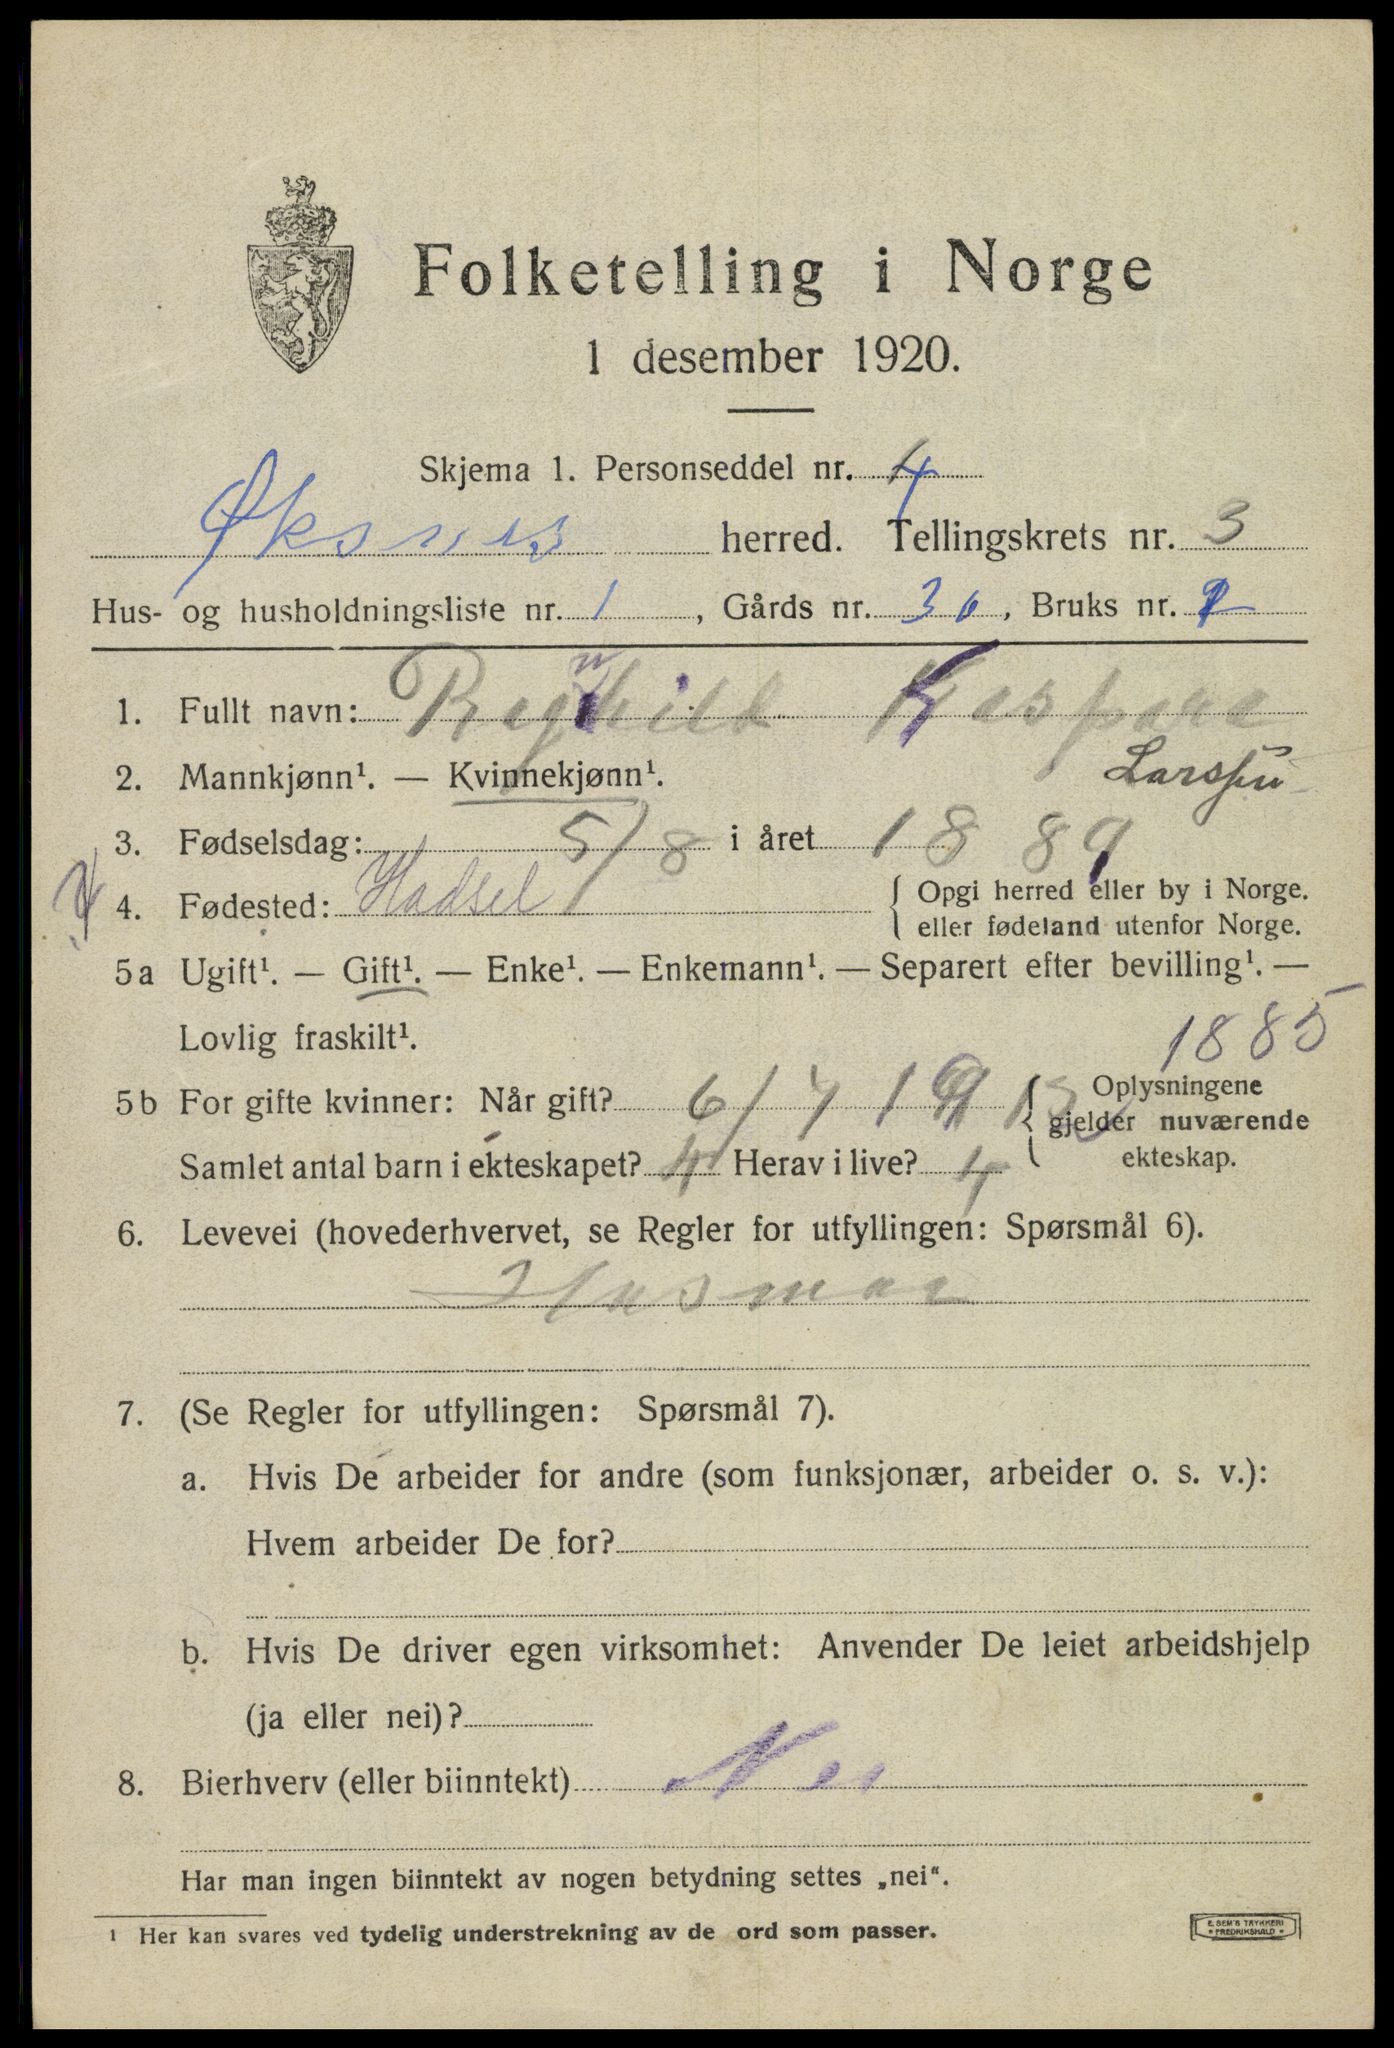 Folketelling i Norge
1 desember 1920.
Skjema 1. Personseddel nr. 4
Øksnes herred. Tellingskrets nr. 3
Hus- og husholdningsliste nr. 1, Gårds nr. 36, Bruks nr.
1. Fullt navn:
2. Mannkjønn¹. — Kvinnekjønn¹. Larssen
3. Fødselsdag: 5/8 i året 1889
4. Fødested: Hadsel { Opgi herred eller by i Norge.
eller fødeland utenfor Norge.
5a Ugift¹. — Gift¹. — Enke¹. — Enkemann¹. — Separert efter bevilling¹. —
Lovlig fraskilt¹. 1885
5b For gifte kvinner: Når gift? 6/7 19 { Oplysningene
gjelder nuværende
Samlet antal barn i ekteskapet? 4 Herav i live? 4 ekteskap.
6. Levevei (hovederhvervet, se Regler for utfyllingen: Spørsmål 6).
Husmor
7. (Se Regler for utfyllingen: Spørsmål 7).
a. Hvis De arbeider for andre (som funksjonær, arbeider o. s. v.):
Hvem arbeider De for?
b. Hvis De driver egen virksomhet: Anvender De leiet arbeidshjelp
(ja eller nei)?
8. Bierhverv (eller biinntekt) Nei
Har man ingen biinntekt av nogen betydning settes „nei“.
¹ Her kan svares ved tydelig understrekning av de ord som passer.
E. SEM'S TRYKKERI
* FREDRIKSHALD *